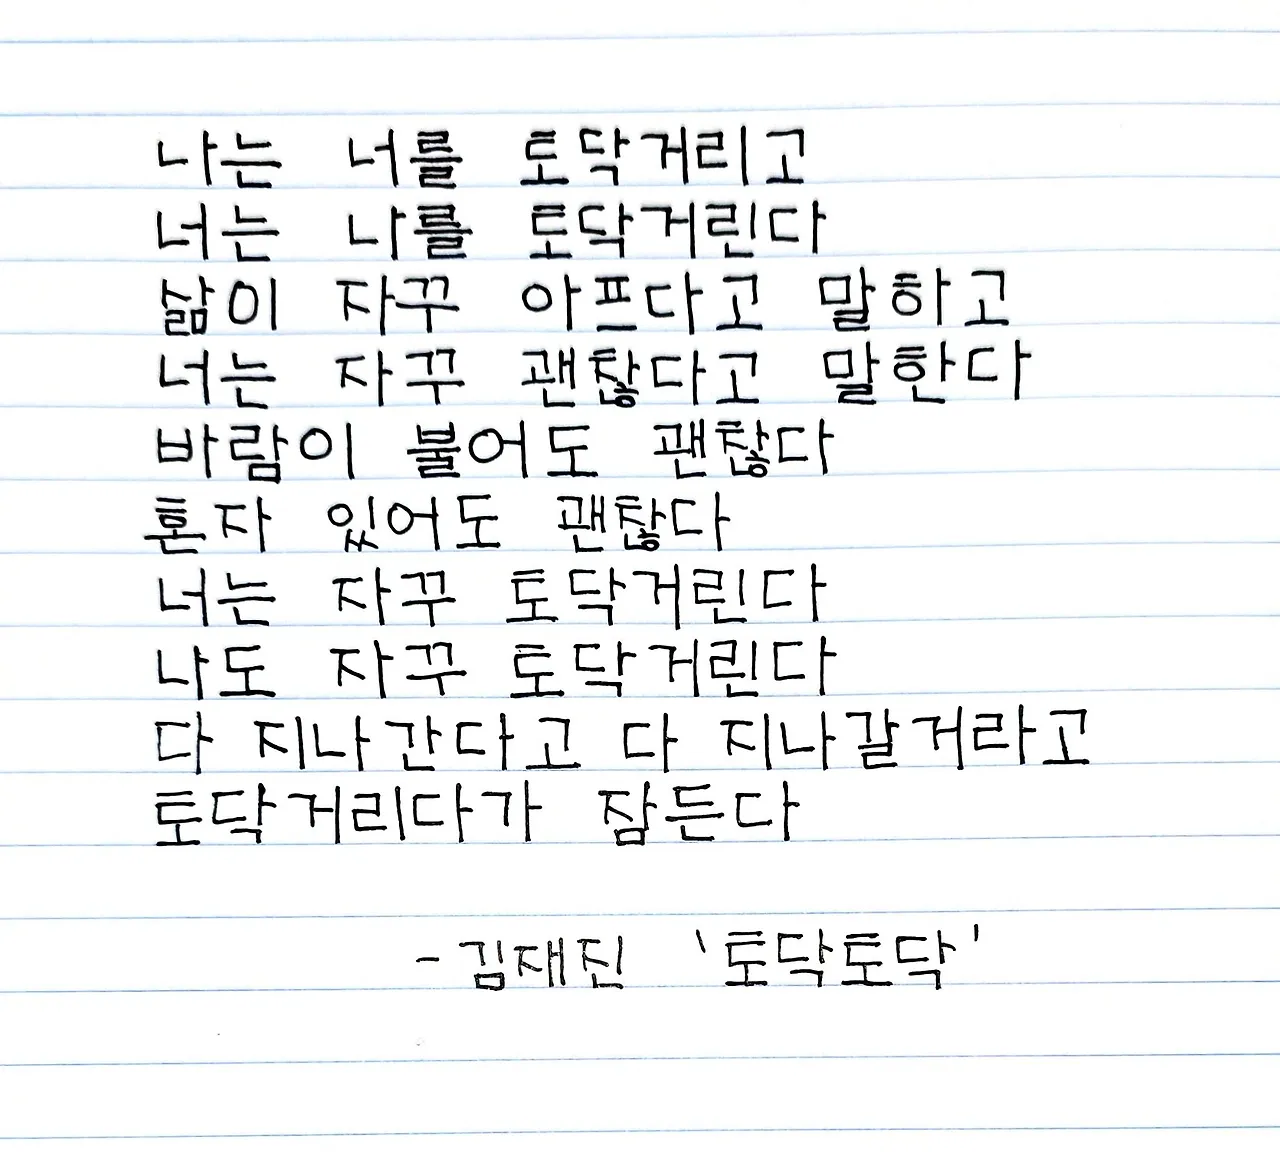 나는 너를 토닥거리고
너는 나를 토닥거린다
삶이 자꾸 아프다고 말하고
너는 자꾸 괜찮다고 말한다
바람이 불어도 괜찮다
혼자 있어도 괜찮다
너는 자꾸 토닥거린다
나도 자꾸 토닥거린다
다 지나간다고 다 지나갈거라고
토닥거리다가 잠든다
-김재진 '토닥토닥'